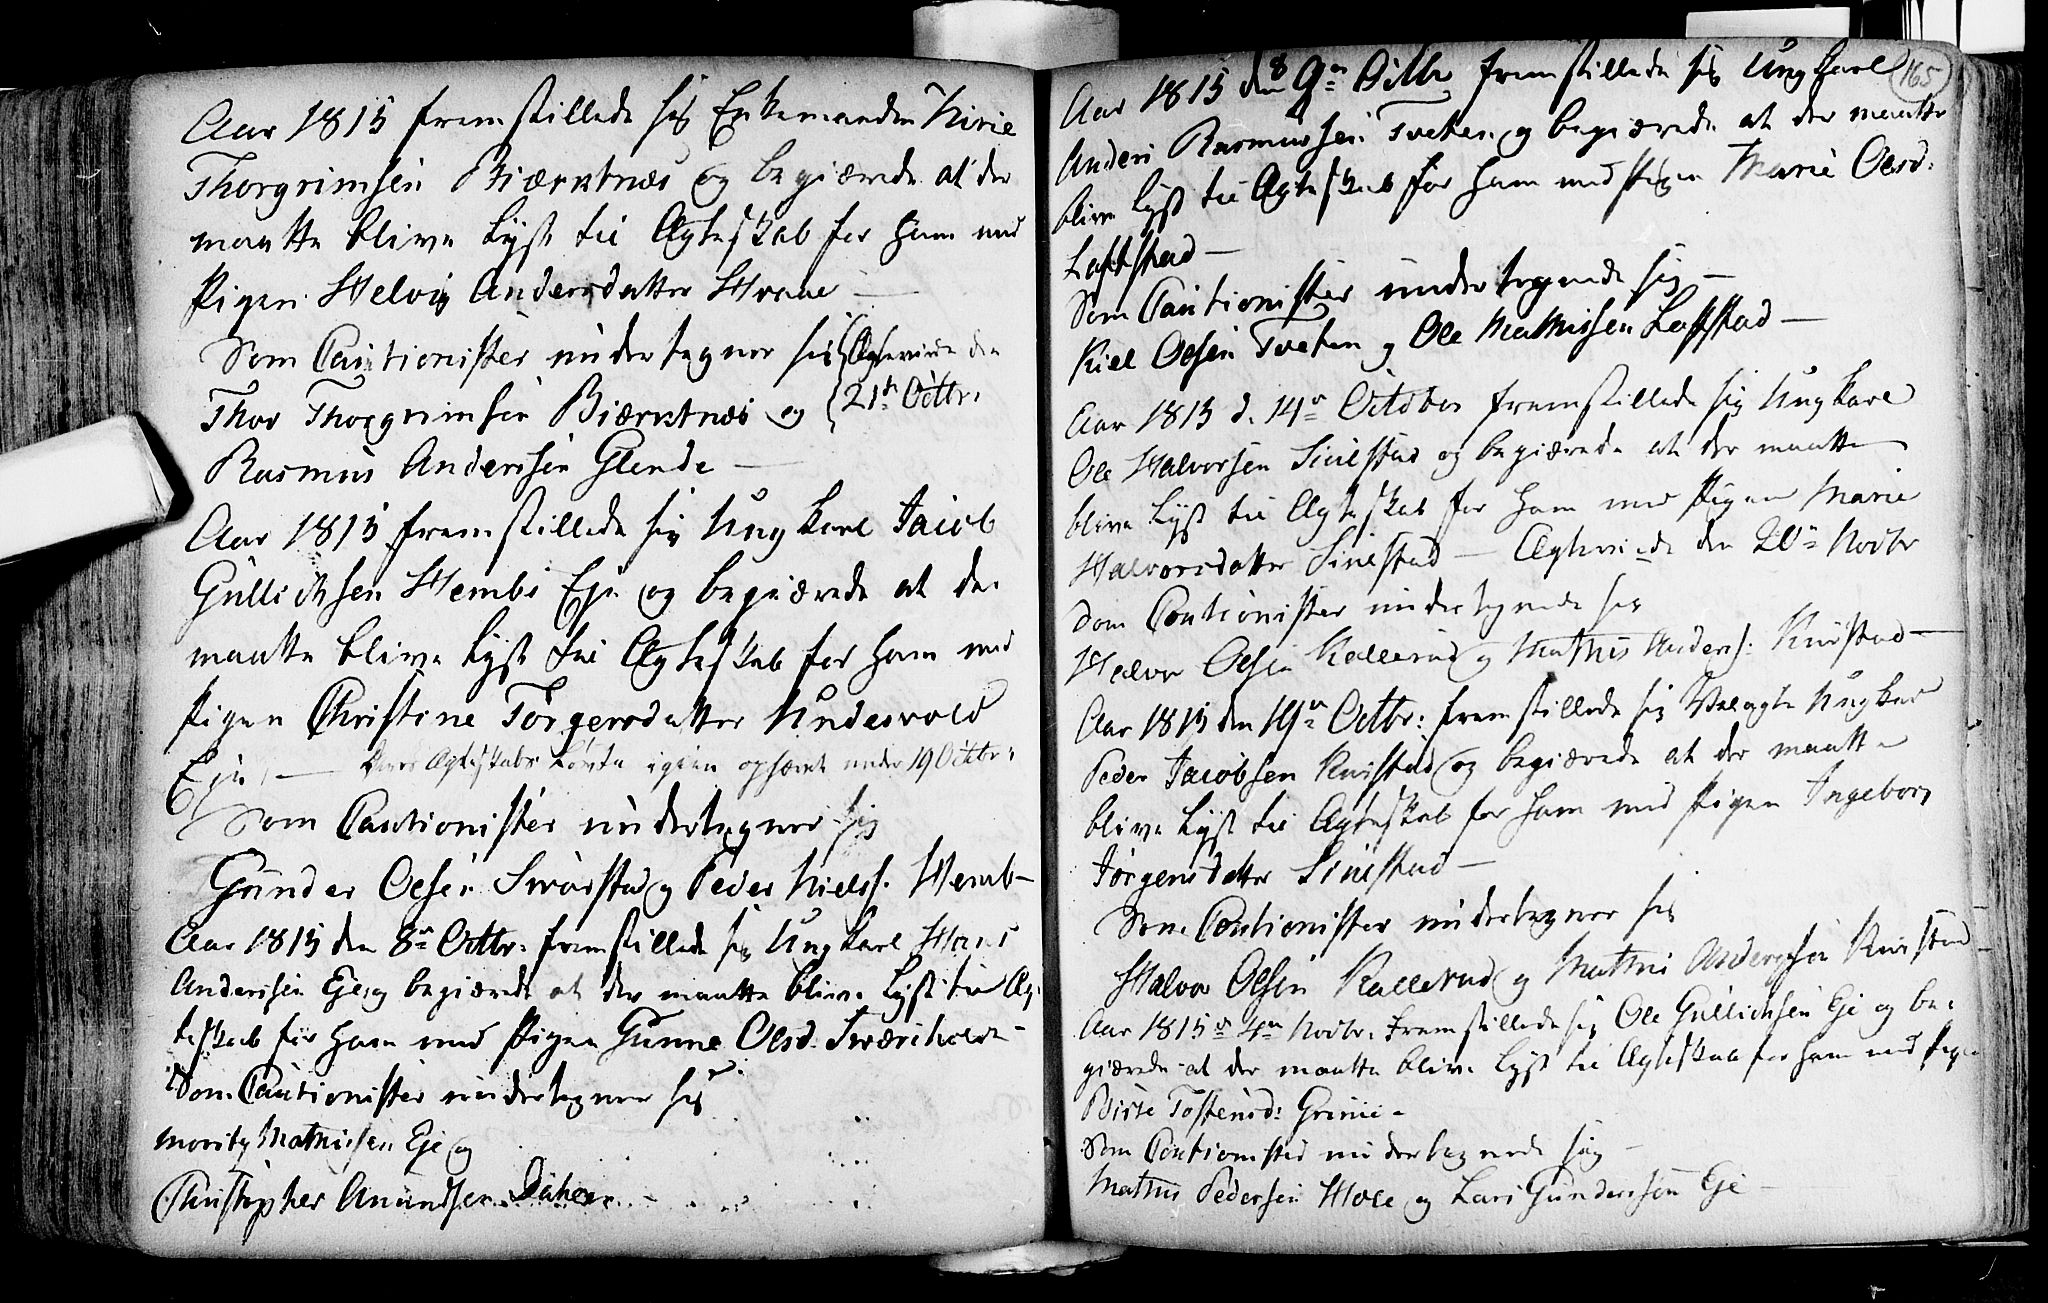 Aar 1815 fremstillede sig Enkemanden Nirie
Thorgrimsen Biærktnæs og begiærede at der
maatte blive Lyst til Ægteskab for ham med
Pigen Helvig Andersdatter Hvaae —
Som Cautionister undertegner sig Ægteviede den
Thor Thorgrimsen Biærktnæs og 21de Octbr:
Rasmus Anderssen Glende —
Aar 1815 fremstillede sig Ung Karl Jacob
Gullichsen Hembs Eje og begiærede at der
maatte blive Lyst til Ægteskab for ham med
Pigen Christine Torgersdatter Undesvold
Eje, — Deres Ægteskabs igien ophævet under 19 Octbr:
Som Cautionister undertegner sig
Gunder Olsen Sworstad og Peder Nielss. Hemb —
Aar 1815 den 8de Octbr: fremstillede sig Ung Karl Hans
Anderssen Eje, og begiærede at der maatte blive Lyst til Æg-
teskab for ham med Pigen Gunne Olsd. Sværiholdt —
Som Cautionister undertegner sig
Moritz Mathissen Eje og
Christopher Amundsen
165
Aar 1815 den 9de Octbr fremstillede sig Ung Karl
Anders Rasmussen Tveten og begiærede at der maatte
blive Lyst til Ægteskab for ham med Pigen Marie Olsd:
Loftstad —
Som Cautionister undertegnede sig —
Kiel Olsen Tveten og Ole Mathissen Loftstad —
Aar 1815 d. 14de October fremstillede sig Ung Karl
Ole Halvorsen Siulstad og begiærede at der maatte
blive Lyst til Ægteskab for ham med Pigen Marie
Halvorsdatter Siulstad — Ægteviede den 20de Novbr
Som Cautionister undertegnede sig
Halvor Olsen Kallerud og Mathis Anderss: Kuistad —
Aar 1815 den 19de Octbr: fremstillede sig Velagte Ung Karl
Peder Jacobsen Kuistad og begiærede at der maatte
blive Lyst til Ægteskab for ham med Pigen Ingeborg
Jørgensdatter Siulstad —
Som Cautionister undertegner sig
Halvor Olsen Kallerud og Mathis Anderssen Kuistad —
Aar 1815 d. 4de Novbr. Fremstillede sig Ole Gullichsen Eje og be-
giærede at der maatte blive Lyst til Ægteskab for ham med Pigen
Birte Tostensd: Grinie —
Som Cautionister undertegnede sig —
Mathis Pedersen Hvale og Lars Gunderssøn Eje —